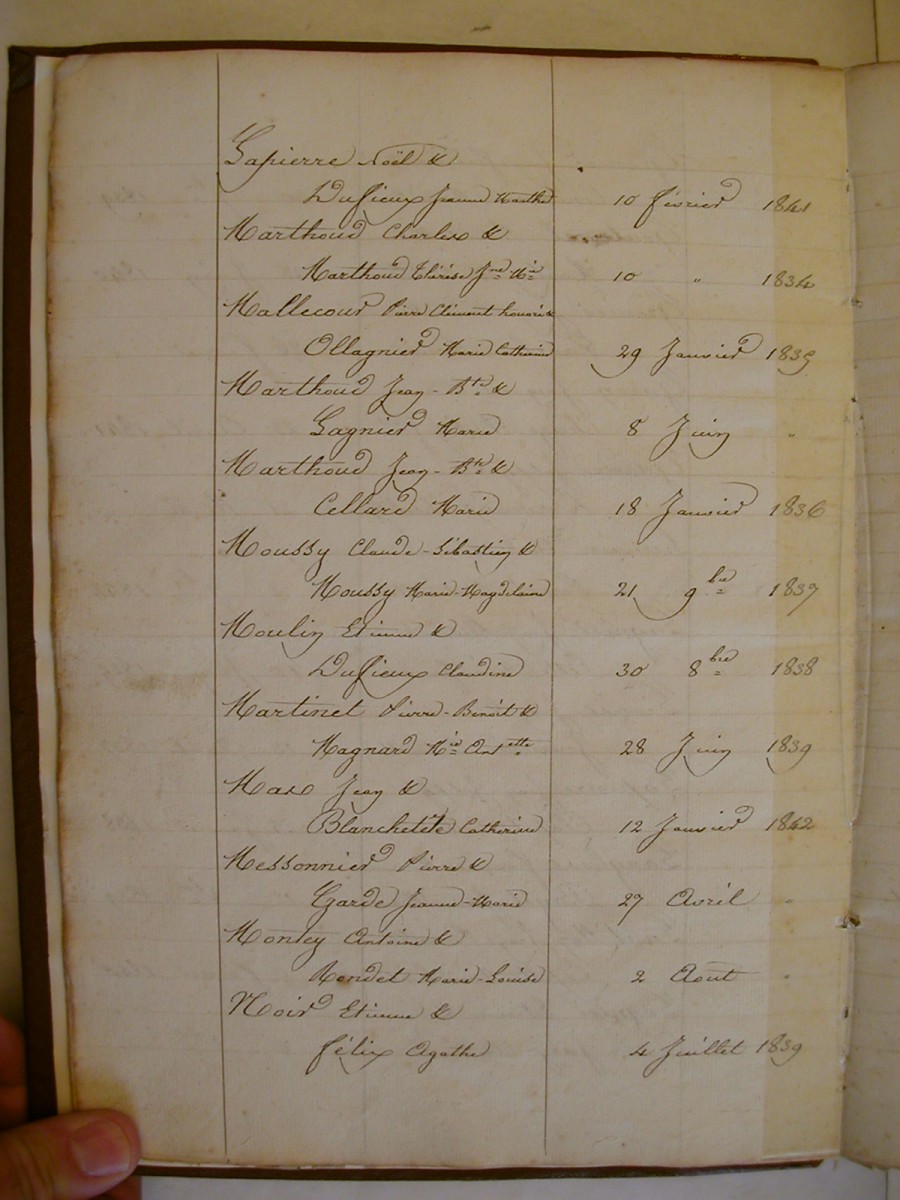 Lapierre Noël &
Dufieux Jeanne Marthe 10 février 1841
Marthoud Charles &
Marthoud Thérèse Jne Mie 10 " 1834
Mallecour Pierre Clément honoré &
Ollagnier Marie Catherine 29 Janvier 1835
Marthoud Jean-Bte &
Gagnier Marie 8 Juin "
Marthoud Jean-Bte &
Cellard Marie 18 Janvier 1836
Moussy Claude-Sébastien &
Moussy Marie-Magdelaine 21 9bre 1837
Moulin Etienne &
Dufieux Claudine 30 8bre 1838
Martinet Pierre-Benoît &
Magnard Mie Antette 28 Juin 1839
Mas Jean &
Blanchetête Catherine 12 Janvier 1842
Messonnier Pierre &
Garde Jeanne-Marie 27 Avril "
Antoine &
Rondet Marie-Louise 2 Aout "
Noir Etienne &
félix Agathe 4 Juillet 1839